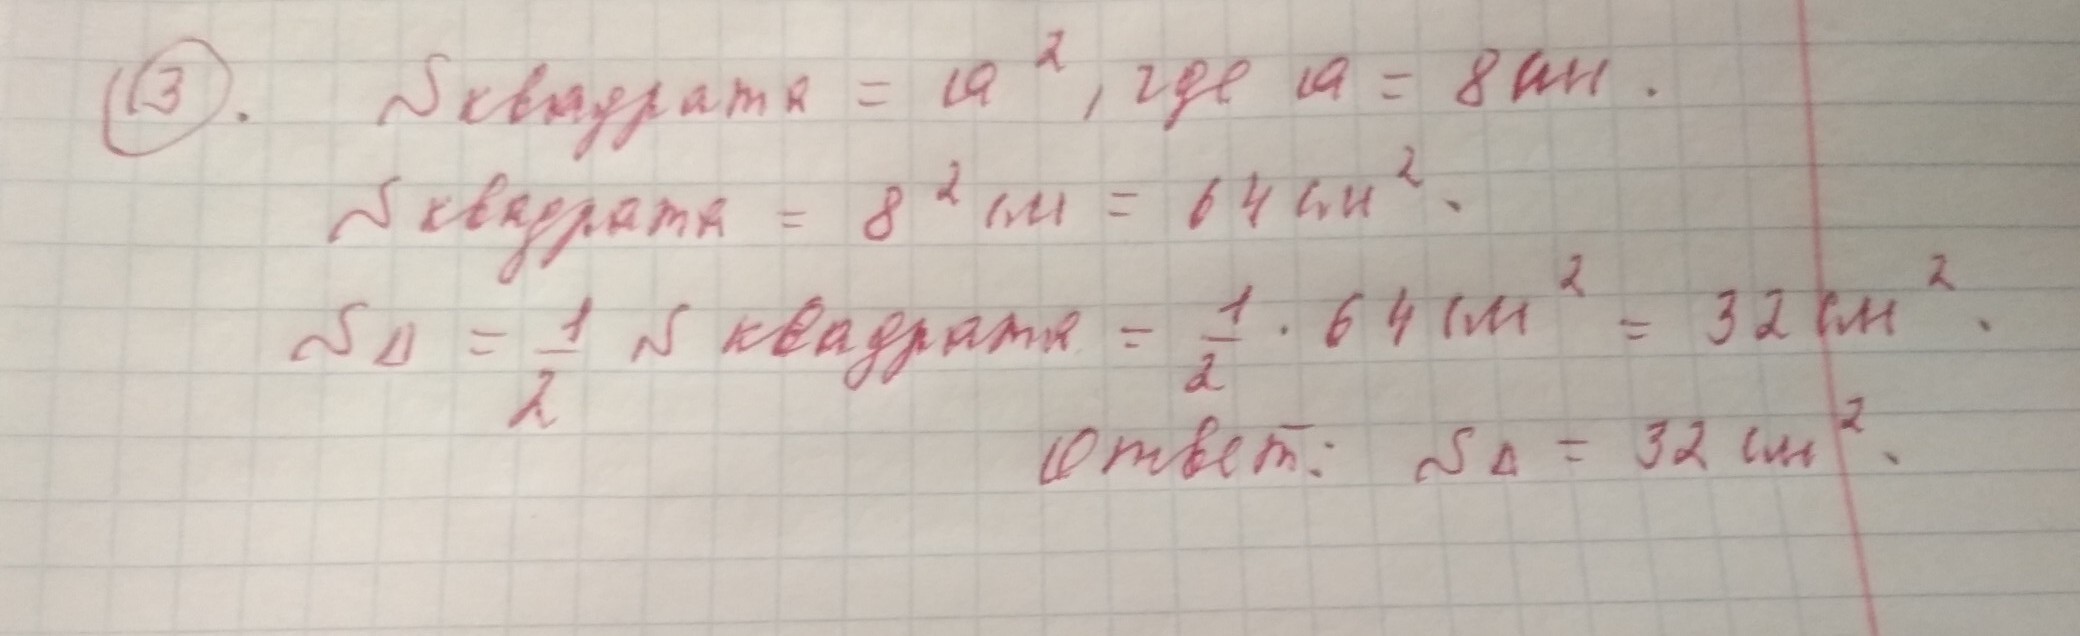 3. S квадрата = a², где a = 8 см.
S квадрата = 8² см = 64 см².
S Δ = 1/2 S квадрата = 1/2 · 64 см² = 32 см².
Ответ: S Δ = 32 см².